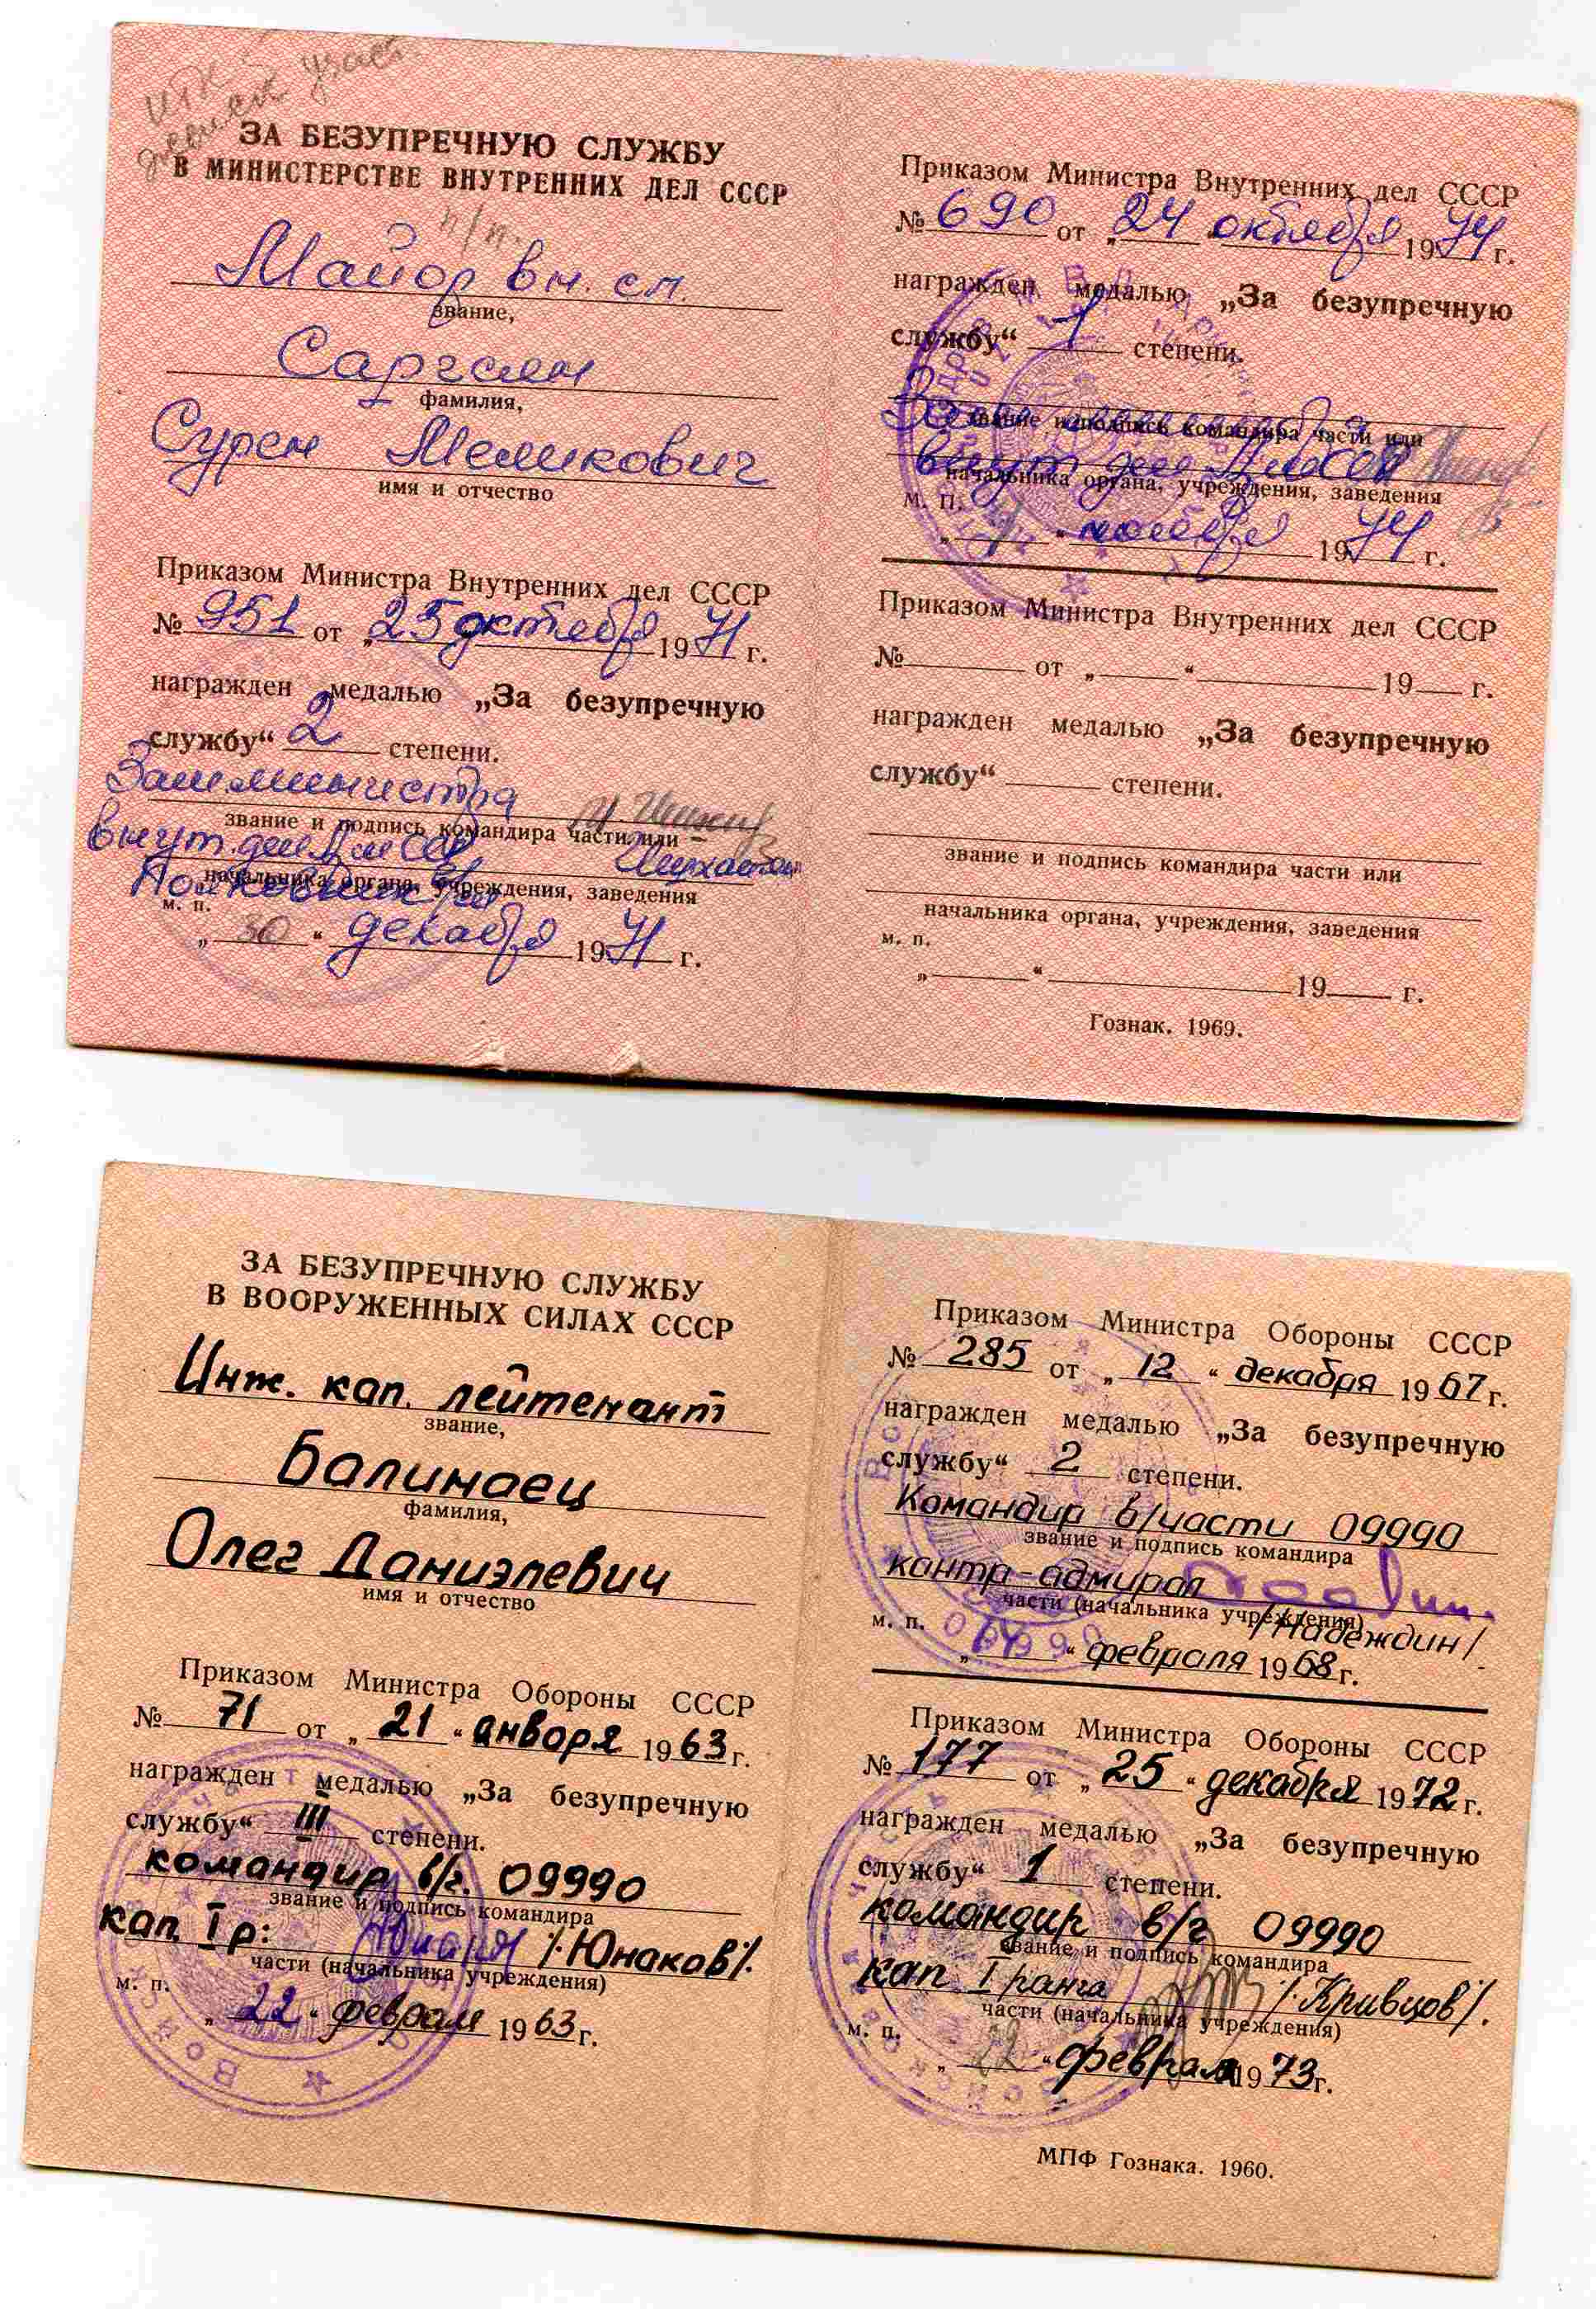 ЗА БЕЗУПРЕЧНУЮ СЛУЖБУ
В МИНИСТЕРСТВЕ ВНУТРЕННИХ ДЕЛ СССР
п/п.
Майор вн. сл.
звание,
Саргсян
фамилия,
Сурен Меликович
имя и отчество
Приказом Министра Внутренних дел СССР
№ 951 от „25 октября 1971 г.
награжден медалью „За безупречную
службу“ 2 степени.
Зам. министра
звание и подпись командира части или
внут. дел Арм ССР
начальника органа, учреждения, заведения
Полковник
м. п.
„30“ декабря 1971 г.
Приказом Министра Внутренних дел СССР
№ 690 от „24 октября 1974 г.
награжден медалью „За безупречную
службу“ 1 степени.
звание и подпись командира части или
внут дел Арм ССР
начальника органа, учреждения, заведения
м. п.
ноября 1974 г.
Приказом Министра Внутренних дел СССР
№ от „ “ 19 г.
награжден медалью „За безупречную
службу“ степени.
звание и подпись командира части или
начальника органа, учреждения, заведения
м. п.
„ “ 19 г.
Гознак. 1969.
ЗА БЕЗУПРЕЧНУЮ СЛУЖБУ
В ВООРУЖЕННЫХ СИЛАХ СССР
Инж. кап. лейтенант
звание,
Балинаец
фамилия,
Олег Даниэлевич
имя и отчество
Приказом Министра Обороны СССР
№ 71 от „21“ января 1963 г.
награжден медалью „За безупречную
службу“ III степени.
командир в/ч. 09990
звание и подпись командира
кап. I р: /Юнаков/.
части (начальника учреждения)
м. п.
„22“ февраля 1963 г.
Приказом Министра Обороны СССР
№ 285 от „12“ декабря 1967 г.
награжден медалью „За безупречную
службу“ 2 степени.
Командир в/части 09990
звание и подпись командира
контр-адмирал
части (начальника учреждения)
/Надеждин/
м. п.
„14“ февраля 1968 г.
Приказом Министра Обороны СССР
№ 177 от „25“ декабря 1972 г.
награжден медалью „За безупречную
службу“ 1 степени.
командир в/ч 09990
звание и подпись командира
кап I ранга /Кривцов/.
части (начальника учреждения)
м. п.
„22“ февраля 1973 г.
МПФ Гознака. 1960.